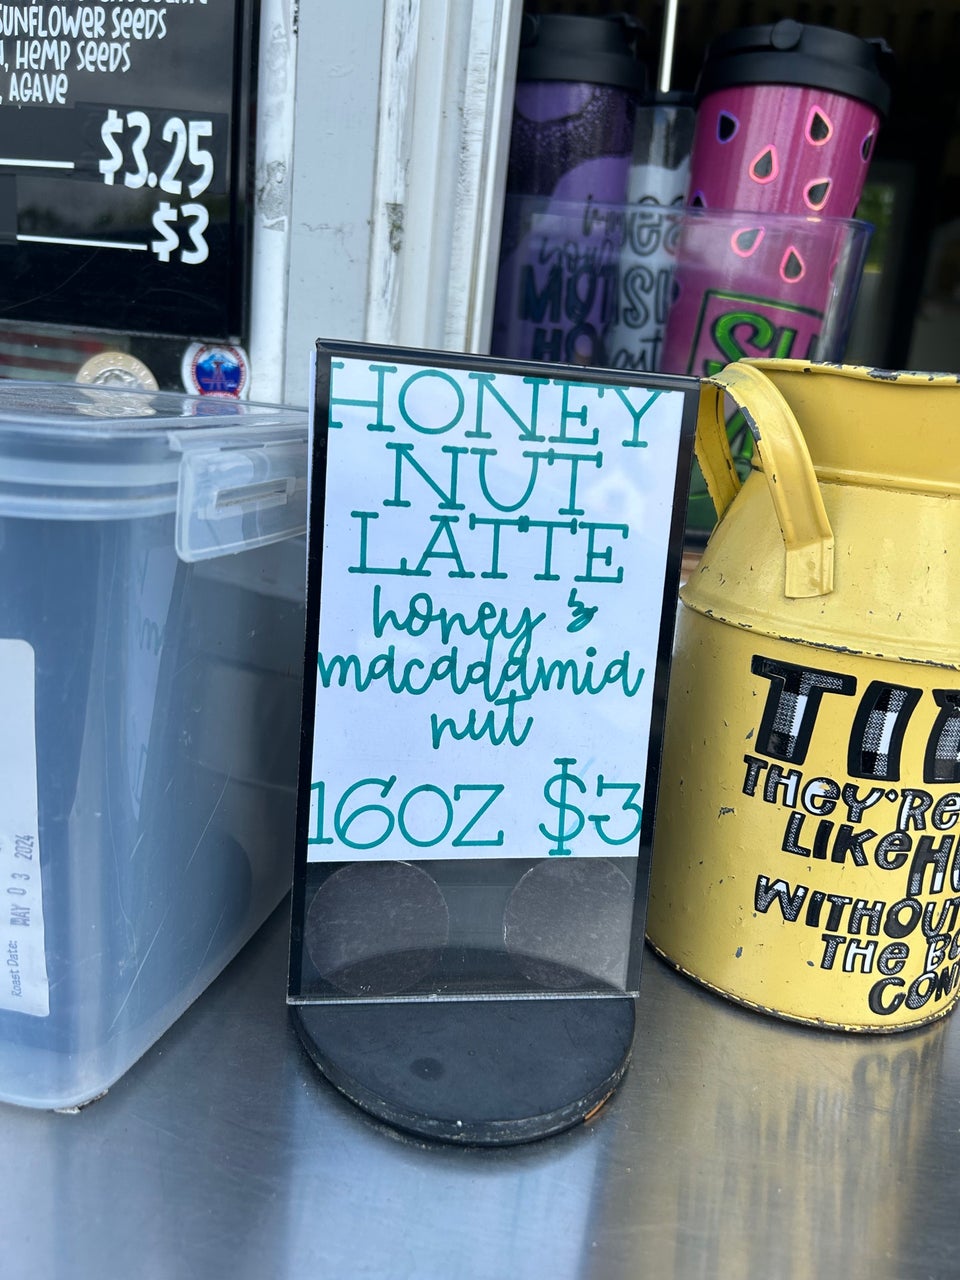 SUNFLOWER SEEDS
, HEMP SEEDS
, AGAVE
$3.25
$3
HONEY
NUT
LATTE
honey &
macadamia
nut
16OZ $3
MAY 03 2024
Roast Date:
THEY'RE
LIKE
WITHOUT
THE